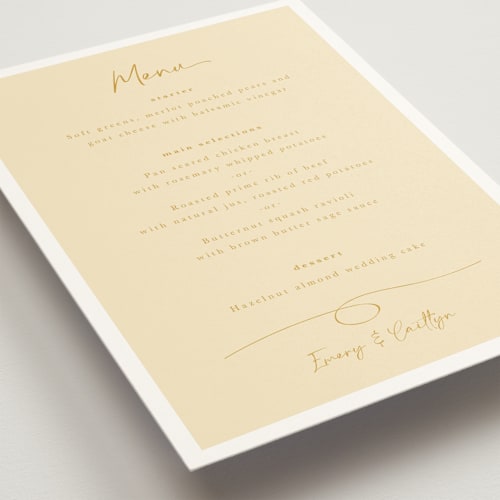 Menu
starter
Soft greens, merlot poached pears and
goat cheese with balsamic vinegar
main selections
Pan seared chicken breast
with rosemary whipped potatoes
-or-
Roasted prime rib of beef
with natural jus, roasted red potatoes
-or-
Butternut squash ravioli
with brown butter sage sauce
dessert
Hazelnut almond wedding cake
Emery & Caitlyn